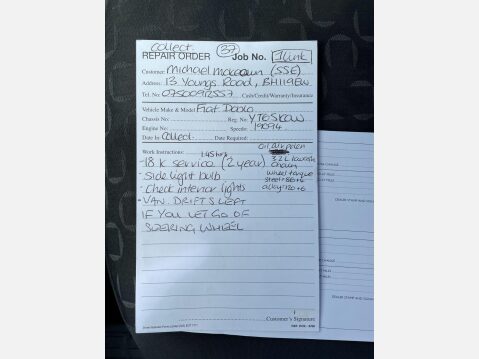 Collect 37
REPAIR ORDER Job No. 1Link
Customer: Michael (SSE)
Address: 13 Youngs Road, BH119EW
Tel. No: Cash/Credit/Warranty/Insurance
Vehicle Make & Model Fiat Doblo
Chassis No: Reg. No: YT65KOW
Engine No: Speedo: 19094
Date In Collect Date Required:
Work Instructions: 1.45hrs Oil air pollen
- 18 K Service (2 year) 3.2L
- Side light bulb wheel torque
- Check interior lights steel = 86+6
alloy = 120+6
- VAN DRIFTS LEFT
IF YOU LET GO OF
STEERING WHEEL
Customer's Signature